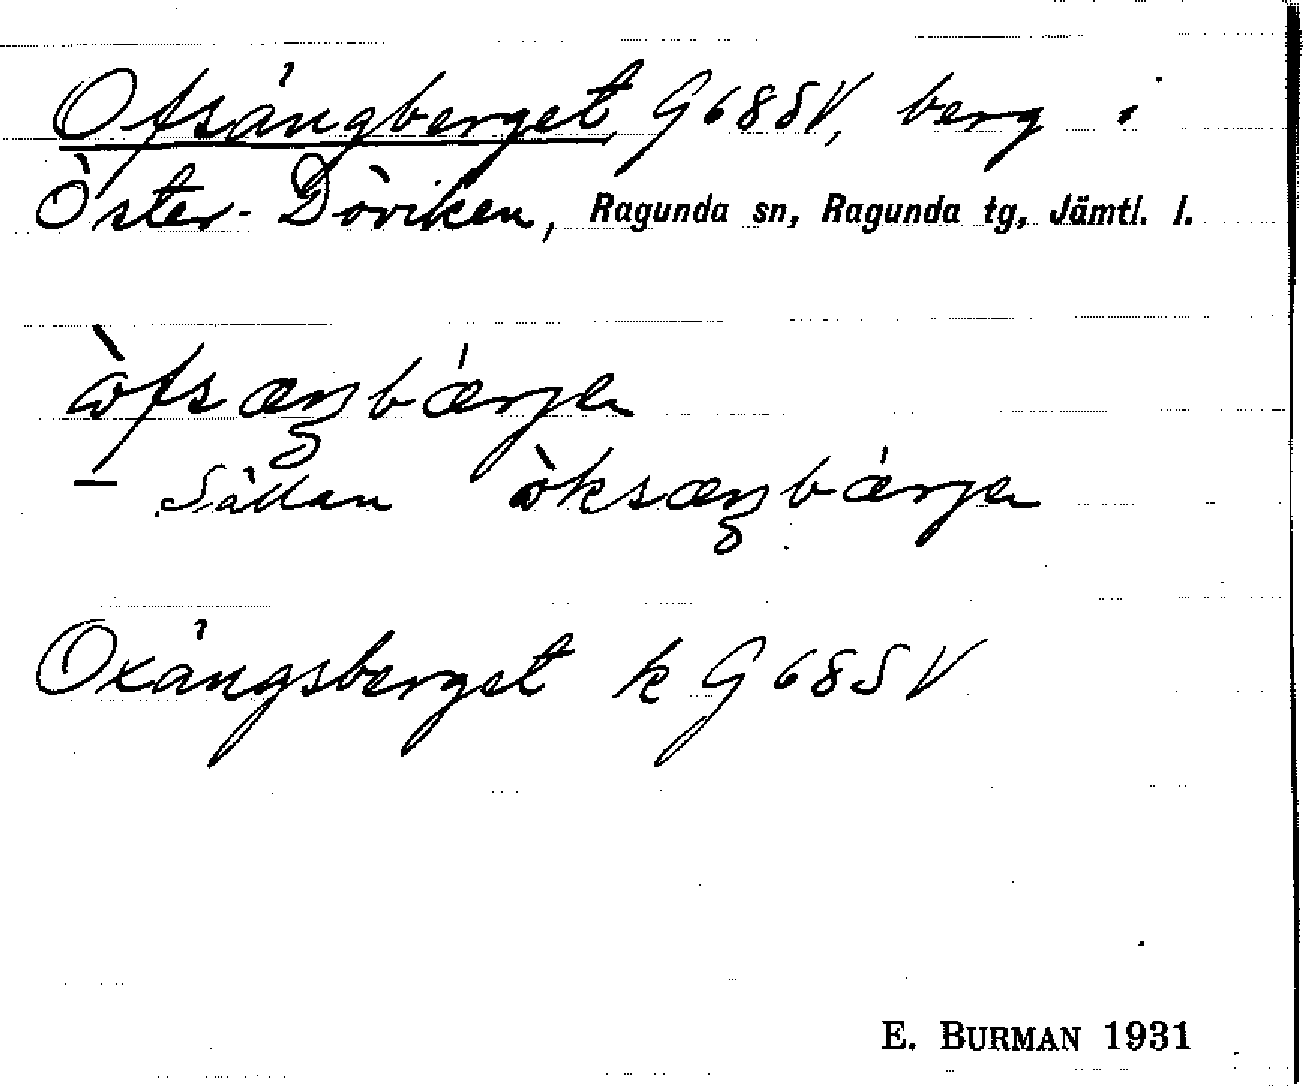 Ofsångberget, G68SV, berg i
Öster-Döviken, Ragunda sn, Ragunda tg, Jämtl. l.
ɷ̀fsæŋbǽrjə
— Sällan ɷ̀ksæŋbǽrjə
Oxångsberget k G68SV
E. BURMAN 1931